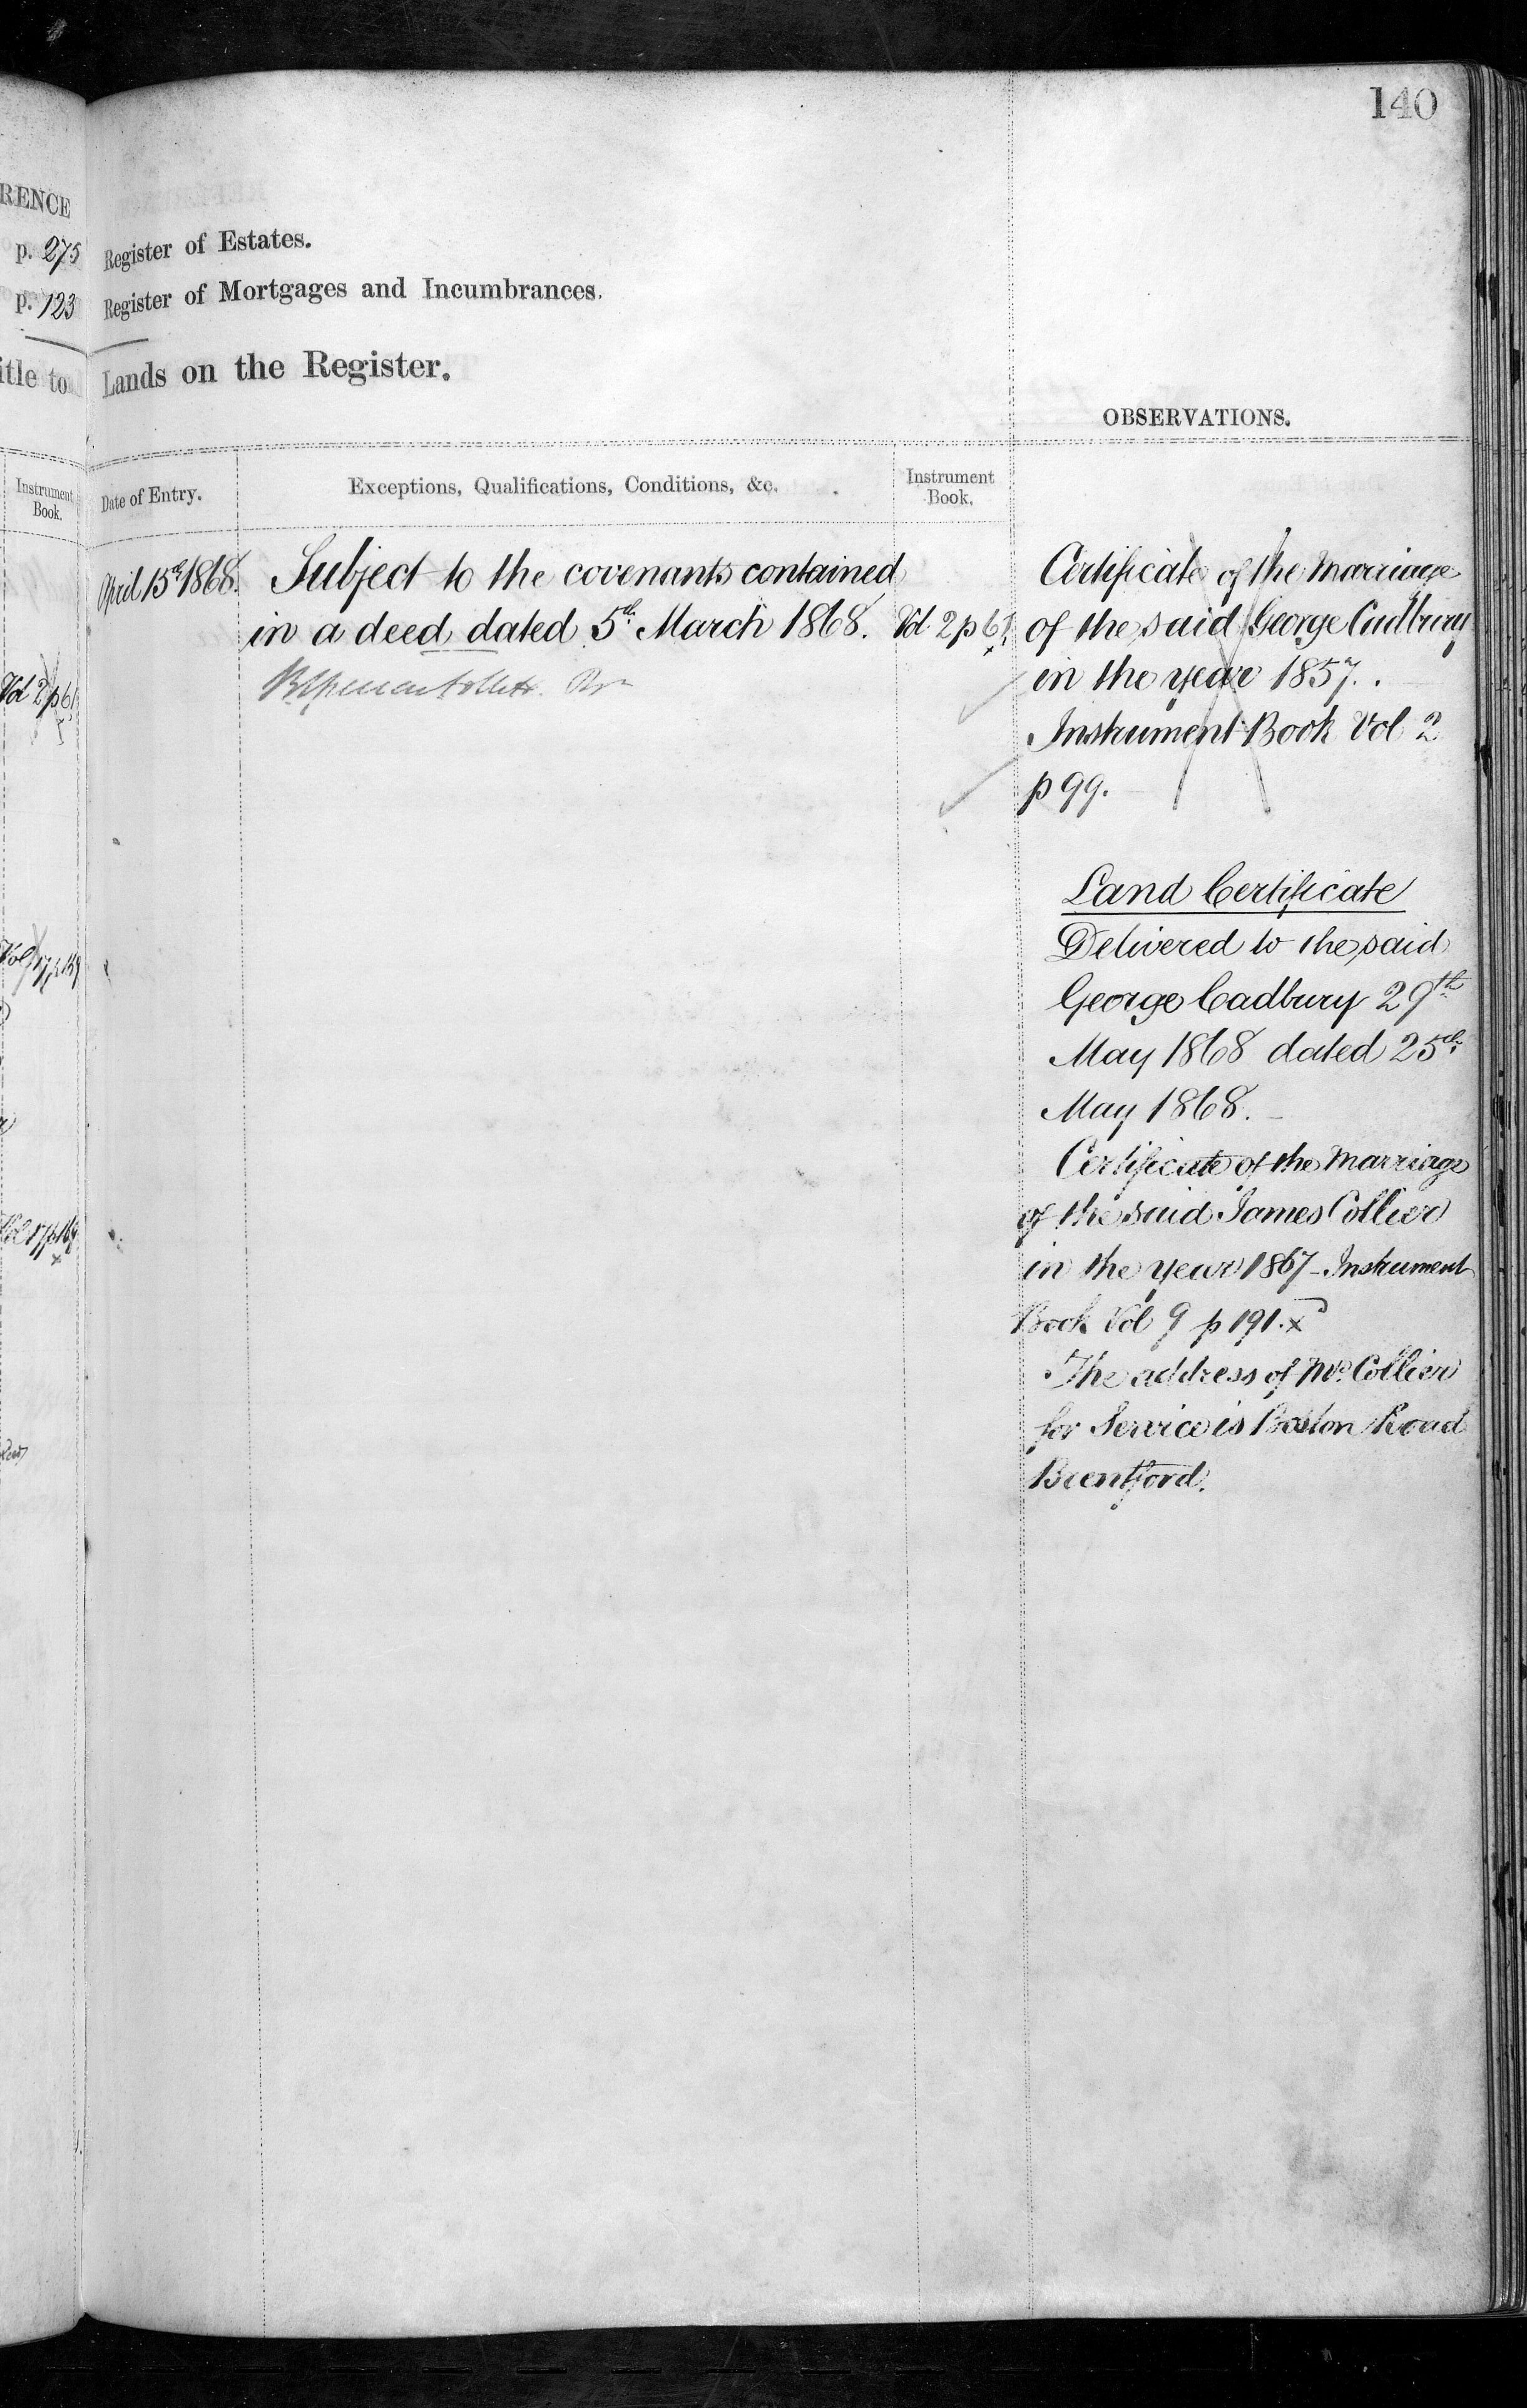 140
RENCE
p. 275 Register of Estates.
p. 123 Register of Mortgages and Incumbrances.
itle to Lands on the Register.
OBSERVATIONS.
Instrument Book.
Date of Entry.
Exceptions, Qualifications, Conditions, &c.
Instrument Book.
April 15th 1868. Subject to the covenants contained
in a deed dated 5th March 1868. Vol 2 p 61
Vol 2 p 61
Certificate of the Marriage
of the said George Cadbury
in the year 1857.
Instrument Book Vol 2
p 99.
Land Certificate
Delivered to the said
George Cadbury 29th
May 1868 dated 25th
May 1868.
Certificate of the Marriage
of the said James Collier
in the year 1867 - Instrument
Book Vol 9 p 191. x
The address of Mr Collier
for Service is Boston Road
Brentford.